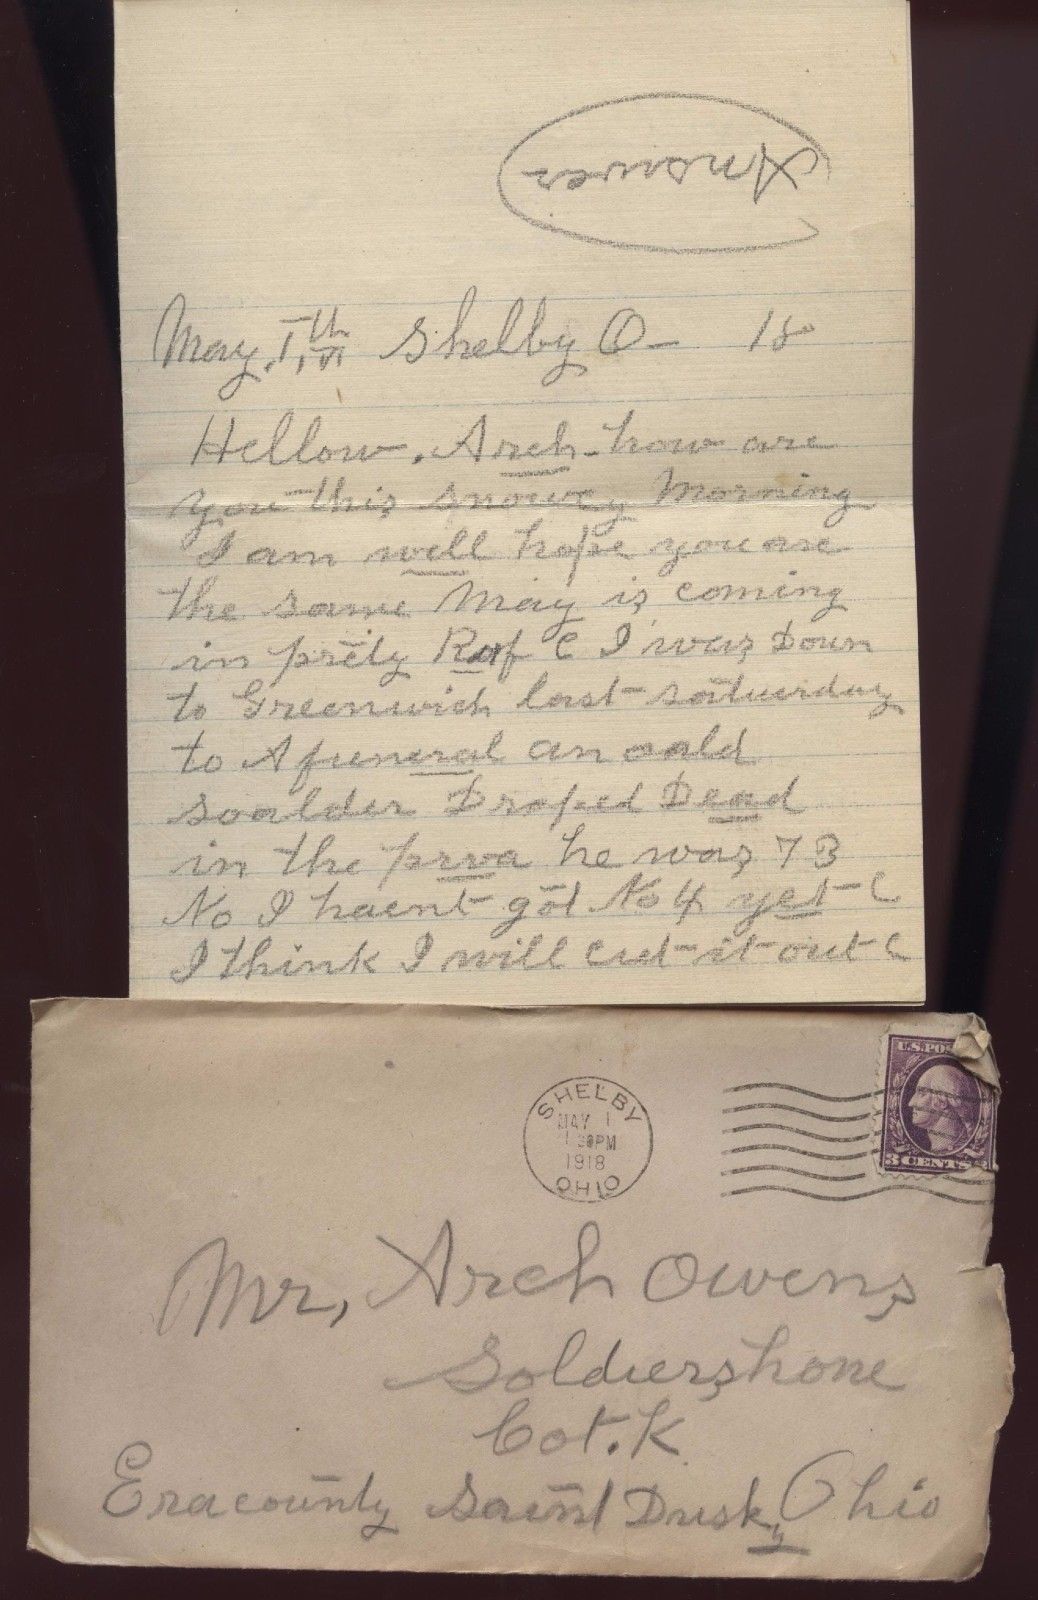 Answer
May, 1,th Shelby O- 18
Hellow. Arch. how are
you this snowey Morning
I am well hope you are
the same May is coming
in prety Ruf I was Down
to Greenwich last satuerday
to A funeral an oald
soalder Droped Dead
in the he was 73
No I haent got No 4 yet
I think I will cut it out
SHELBY
MAY 1
30PM
1918
OHIO
U.S.POS
3 CENTS 3
Mr, Arch Owens
Soldiershone
Cot. K
Eracounty Saint Dusky Ohio